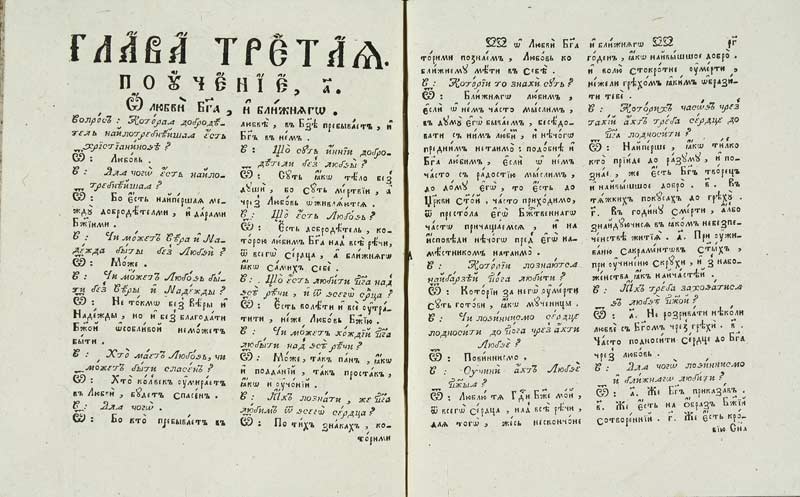 ГЛАВА ТРЕТАѦ.
ПОꙊЧЕНІЕ, а҃.
Ѿ любви Бг҃а, и ближнягѡ.
Вопросъ: Которая добродѣ-
тель найпотребнѣйшая есть
хрїстїанинове?
Ѿ: Любовь.
В: Для чогѡ есть найпо-
требнѣйшая?
Ѿ: Бо есть найпершая ме-
жду добродѣтелми, и дарами
Бж҃іими.
В: Чи можетъ Вѣра и На-
дежда быти без Любви?
Ѿ: Може.
В: Чи можетъ Любовь бы-
ти без Вѣры и Надежды?
Ѿ: Не токмѡ без Вѣры и
Надежды, но и без благодати
Бж҃ои ѡсобливой неможетъ
быти.
В: Хто маетъ Любовь, чи
можетъ быти спасенъ?
Ѿ: Хто колвекъ оумираетъ
в Любви, будетъ спасенъ.
В: Для чогѡ.
Ѿ: Бо кто пребываетъ въ
любвѣ, в Бз҃ѣ пребываетъ, и
Бг҃ъ в немъ.
В: Що суть иннїи добро-
дѣтели без любвѣ?
Ѿ: Суть якѡ тѣло без
души, бо суть мертвїи, а
чрез Любовь ѡживляются.
В: Що есть Любовь?
Ѿ: Есть добродѣтель, ко-
торою любимъ Бг҃а над всѣ рѣчи,
ѿ всегѡ Сердца, а ближнягѡ
якѡ Самихъ Себе.
В: Що есть любити Бг҃а над
всѣ рѣчи, и ѿ всегѡ срдца?
Ѿ: Есть волѣти и всѣ оутра-
тити, неже Любовь Бж҃ію.
В: Чи можетъ кождїй Бг҃а
любити над всѣ рѣчи?
Ѿ: Може, такъ панъ, якѡ
и подданїй, такъ простакъ,
якѡ и оученїй.
В: Якъ познати, же Бг҃а
любимъ ѿ всегѡ сердца?
Ѿ: По тихъ знакахъ, ко-
торими
ѿ Любви Бг҃а
торими познаемъ, Любовь ко
ближнему мѣти в Себѣ.
В: Которїи то знаки суть?
Ѿ: Ближняго любимъ,
если ѡ немъ часто мыслимъ,
в думу егѡ бываемъ, бесѣдо-
вати съ нимъ люби, и нѣчогѡ
предъ нимъ нетаимо: подобнѣ и
Бг҃а любимъ, если ѡ немъ
часто съ радостїю мыслимъ,
до дому егѡ, то есть до
Церкви Стой, часто приходимо,
ѿ престола егѡ Бж҃ственнагѡ
часто причащаемся, и на
исповѣди нѣчого пред егѡ на-
мѣстникомъ натаимо.
В: Которїи познаются
найбарзѣй Бг҃а любити?
Ѿ: Которїи за него оумерти
суть готови, якѡ мученицы.
В: Чи повиннисмо сердце
подносити до Бг҃а чрез актъ
Любвѣ?
Ѿ: Повиннисмо.
В: Оучини актъ Любвѣ
Бж҃ыя?
Ѿ: Люблю тя Гд҃и Бже мой,
ѿ всегѡ Сердца, над всѣ рѣчи,
для того, жесь несконьчоне
и ближнягѡ
годенъ, якѡ найвысшое добро.
и волю стокротне оумерти,
нежели грѣхомъ якимъ ѡбрази-
ти тебе.
В: Которихъ часѡвъ чрез
такїй актъ треба сердце до
Бг҃а подносити?
Ѿ: Найперше, якѡ тилко
кто прїиде до разуму, и по-
знае, же есть Бг҃ъ творецъ
и найвысшое добро. в҃. В
тяжкихъ покусахъ до грѣху.
г҃. В годину смерти, албо
знайдуючися в якомъ небезпе-
ченствѣ житїя. д҃. При ѡужи-
ванїю Сакраментовъ Стыхъ,
при оучиненю скрухи, и з набо-
женства якъ найчастѣй.
В: Якъ треба заховатися
въ любвѣ Бж҃ой?
Ѿ: а҃. Не розривати нѣколи
любвѣ съ Бг҃омъ чрез грѣхи. в҃.
Часто подносити Сердце до Бг҃а
чрез любовь.
В: Для чого повиннисмо
и ближняго любити?
Ѿ: а҃. Же Бг҃ъ приказавъ.
в҃. Же есть на ѡбразъ Бж҃їй
Сотвореннїй. г҃. Же есть кро-
вїю Сн҃а